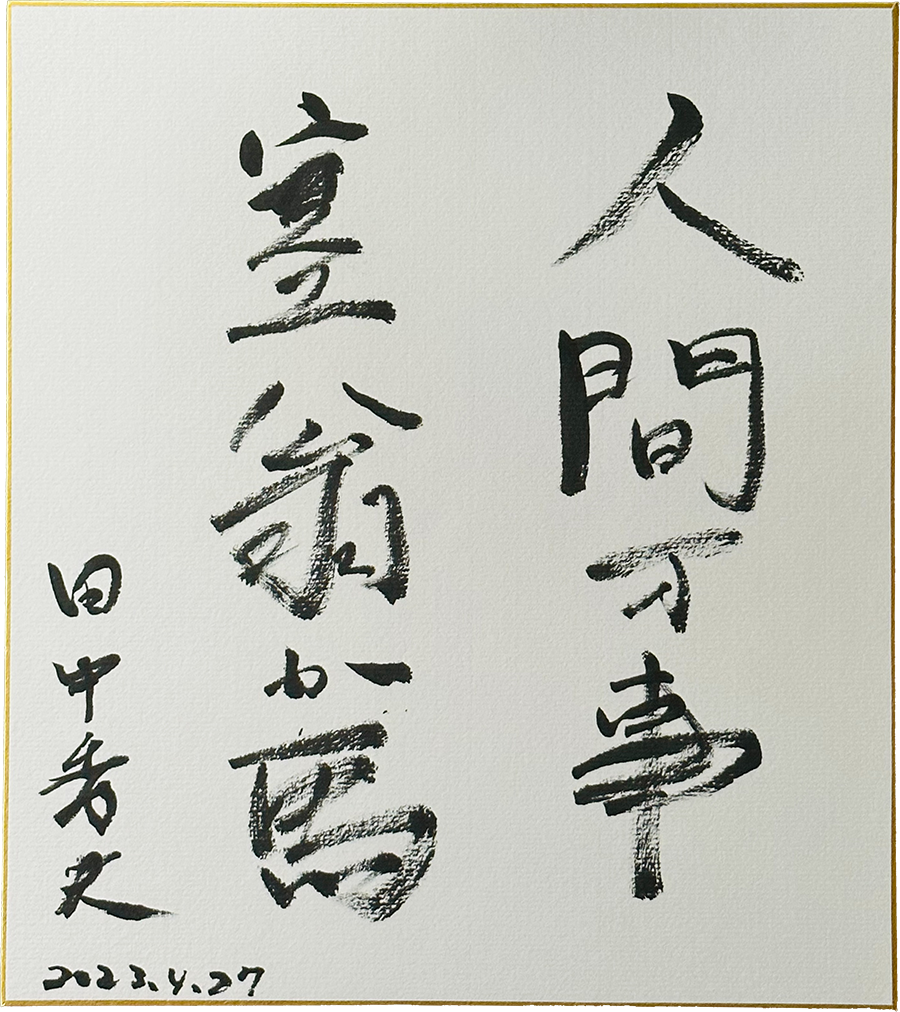 人間万事
塞翁が馬
田中秀
2023.4.27